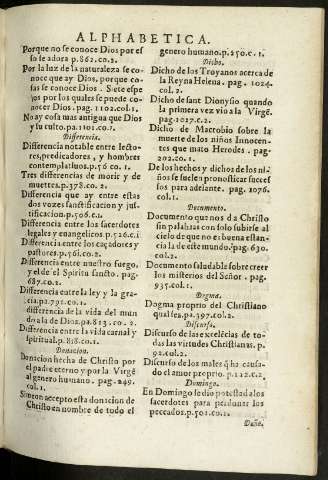 ALPHABETICA.
Porque no se conoce Dios por es
so se adora p.862.co.2.
Por la luz de la naturaleza se co-
noce que ay Dios, porque co-
sas se conoce Dios. Siete espe
jos por los quales se puede co-
nocer Dios. pag. 1102.col.1.
No ay cosa mas antigua que Dios
y su culto. pa.1101.co.1.
Differencia.
Differencia notable entre lecto-
res, predicadores, y hombres
contemplatiuos. p.56 co.1.
Tres differencias de morir y de
muertes. p.378.co.2.
Differencia que ay entre estas
dos vozes sanctificacion y jus-
tificacion. p.506.c.1.
Differencia entre los sacerdotes
legales y euangelicos p.526.c.1
Differencia entre los caçadores y
pastores p.561.co.2.
Differencia entre nuestro fuego,
y el de el Spiritu sancto. pag.
687.co.1.
Differencia entre la ley y la gra-
cia. pa.791.co.1.
differencia de la vida del mun
do a la de Dios. pa.813. co.2.
Differencia entre la vida carnal y
spiritual. p.818.co.1.
Donacion.
Donacion hecha de Christo por
el padre eterno y por la Virgē
al genero humano. pag.249.
col.1.
Simeon accepto esta donacion de
Christo en nombre de todo el
genero humano. p.250.c.1.
Dicho.
Dicho de los Troyanos acerca de
la Reyna Helena. pag. 1024.
col.2.
Dicho de sant Dionysio quando
la primera vez vio a la Virgē.
pag.1027.c.2.
Dicho de Macrobio sobre la
muerte de los niños Innocen-
tes que mato Herodes. pag.
202.co.1.
De los hechos y dichos de los ni-
ños se suelen pronosticar succes
sos para adelante. pag. 1076.
col.1.
Documento.
Documento que nos da Christo
sin palabras con solo subirse al
cielo de que no es buena estan-
cia la de este mundo. pag.630.
col.2.
Documento saludable sobre creer
los misterios del Señor. pag.
937.col.1.
Dogma.
Dogma proprio del Christiano
qual sea. pa.397.col.2.
Discurso.
Discurso de las excelēcias de to-
das las virtudes Christianas. p.
92.col.2.
Discurso de los males q̄ ha causa-
do el amor proprio. p.112.c.2.
Domingo.
En Domingo se dio potestad a los
sacerdotes para perdonar los
peccados. p.501.co.1.
Daño.